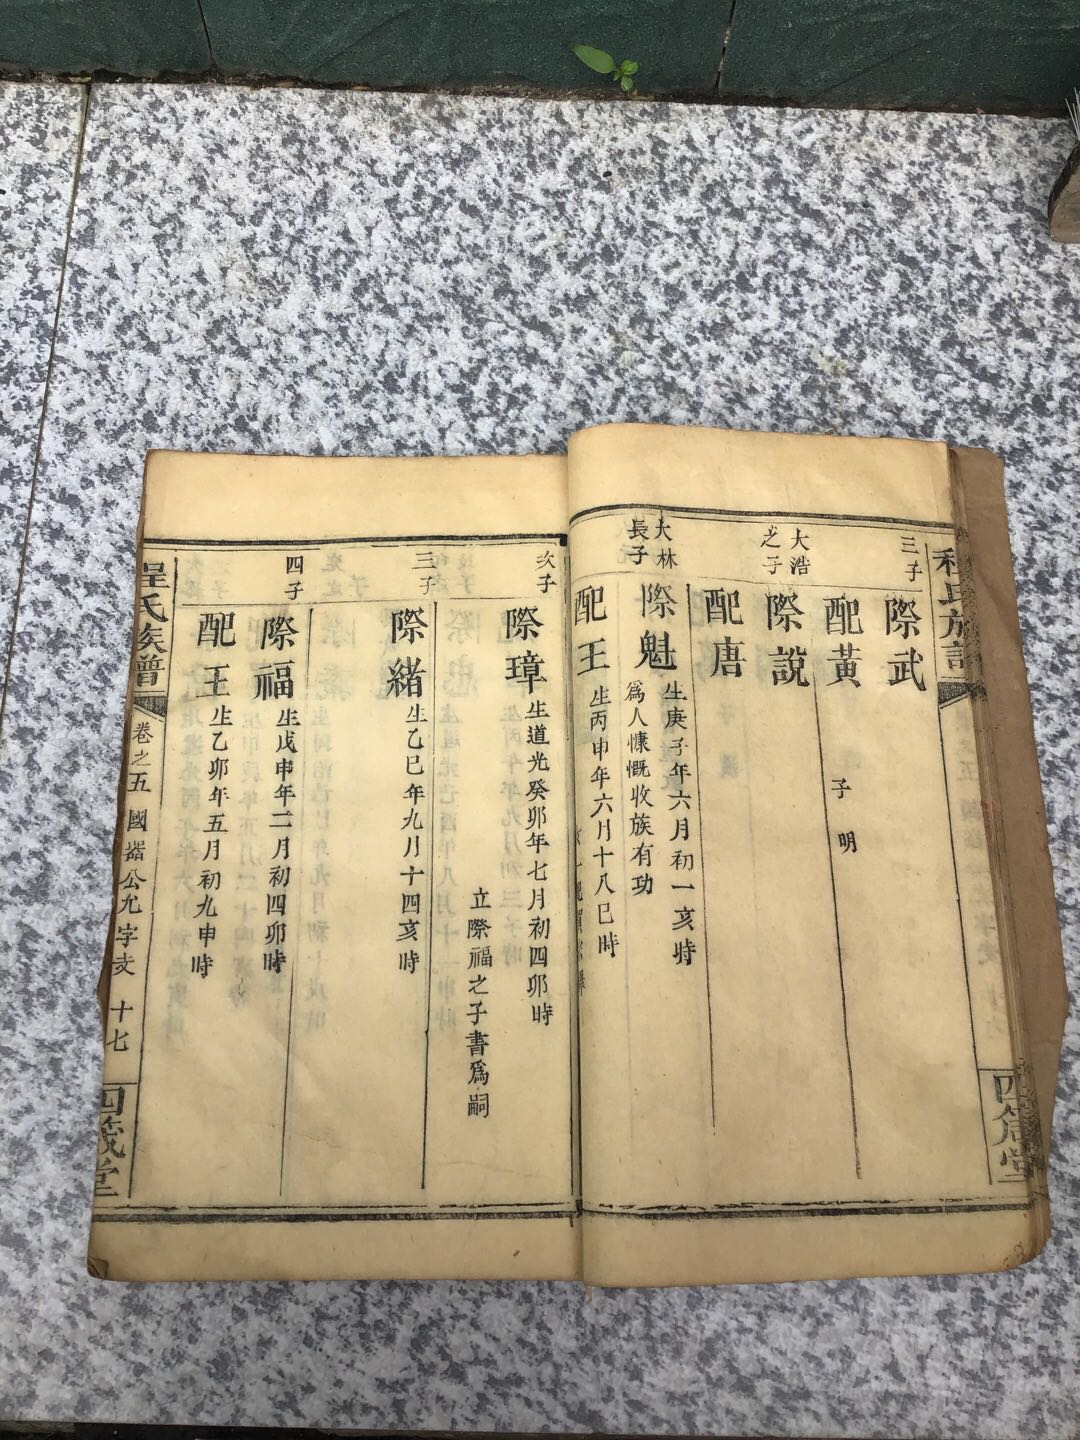 程氏族譜
四箴堂
三子
際武
配黃
子 明
大浩之子
際說
配唐
大林長子
際魁 生庚子年六月初一亥時
爲人慷慨收族有功
配王 生丙申年六月十八巳時
次子
際璋 生道光癸卯年七月初四卯時
立際福之子書爲嗣
三子
際緒 生乙巳年九月十四亥時
四子
際福 生戊申年二月初四卯時
配王 生乙卯年五月初九申時
程氏族譜 卷之五 國器公允字支 十七 四箴堂